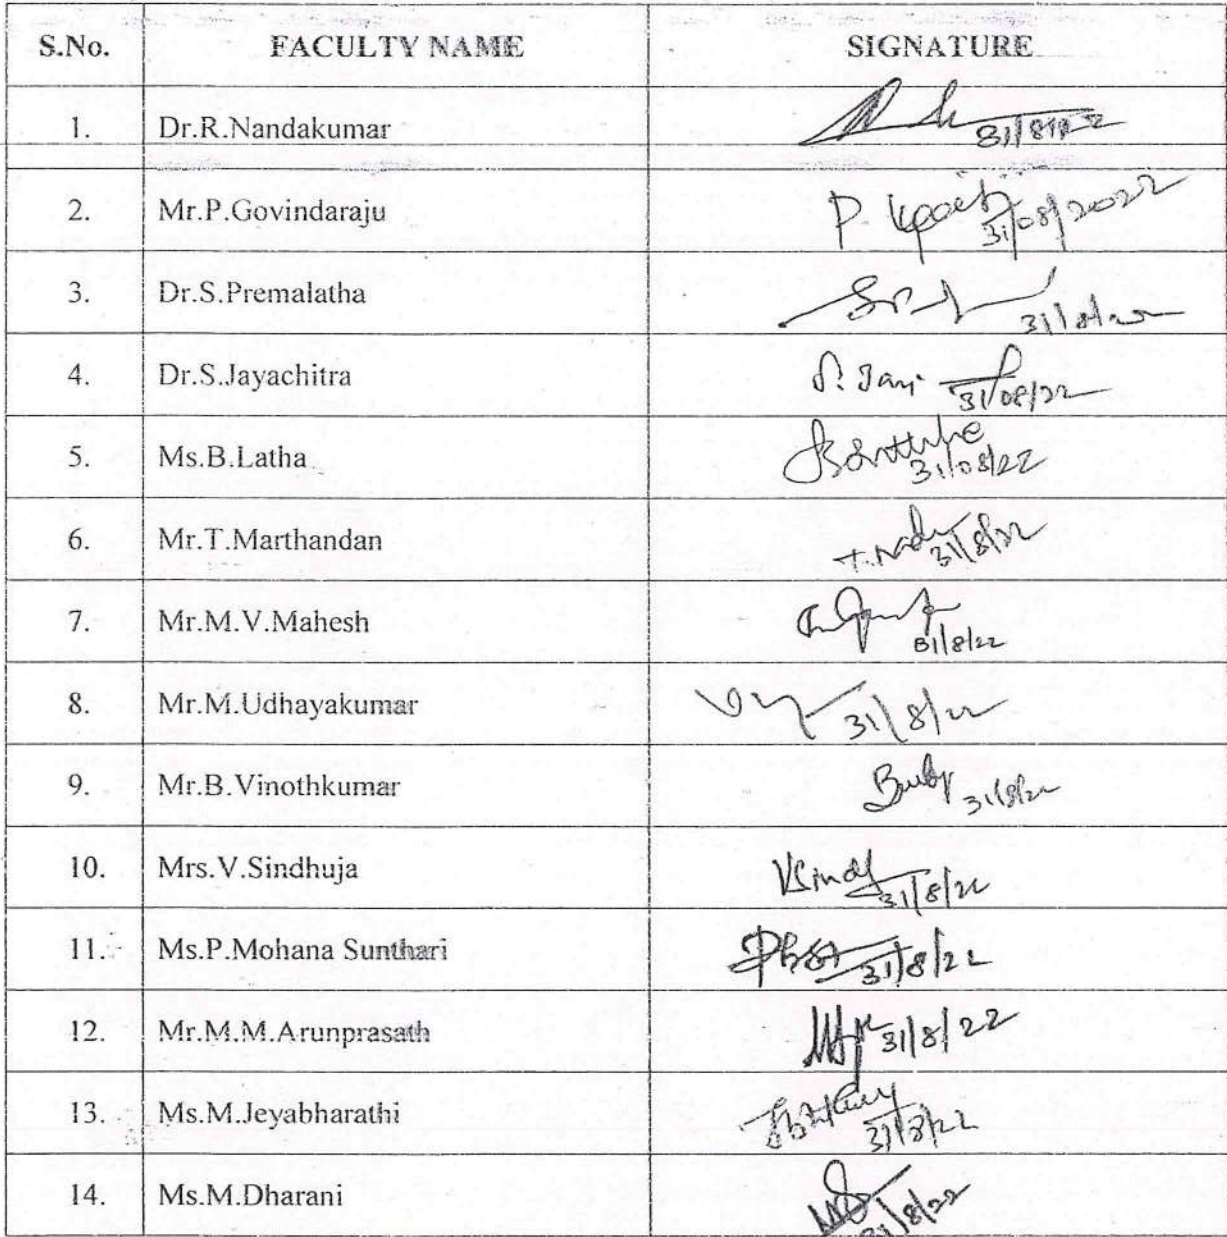 S.No. FACULTY NAME SIGNATURE
1. Dr.R.Nandakumar 31/8/22
2. Mr.P.Govindaraju P. 31/08/2022
3. Dr.S.Premalatha 31/8/22
4. Dr.S.Jayachitra 31/08/22
5. Ms.B.Latha 31/08/22
6. Mr.T.Marthandan 31/8/22
7. Mr.M.V.Mahesh 31/8/22
8. Mr.M.Udhayakumar 31/8/22
9. Mr.B.Vinothkumar 31/8/22
10. Mrs.V.Sindhuja 31/8/22
11. Ms.P.Mohana Sunthari 31/8/22
12. Mr.M.M.Arunprasath 31/8/22
13. Ms.M.Jeyabharathi 31/8/22
14. Ms.M.Dharani 31/8/22